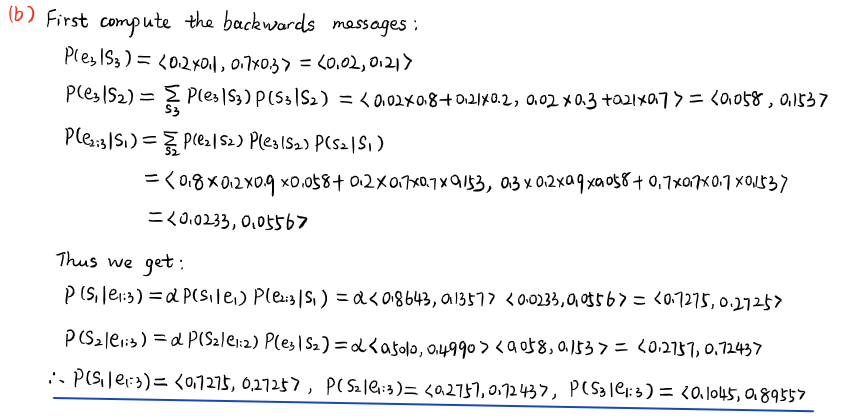 (b) First compute the backwards messages:
P(e₃|S₃) = <0.2×0.1, 0.7×0.3> = <0.02, 0.21>
P(e₃|S₂) = Σ_S₃ P(e₃|S₃) P(S₃|S₂) = <0.02×0.8+0.21×0.2, 0.02×0.3+0.21×0.7> = <0.058, 0.153>
P(e₂:₃|S₁) = Σ_S₂ P(e₂|S₂) P(e₃|S₂) P(S₂|S₁)
= <0.8×0.2×0.9×0.058+0.2×0.7×0.7×0.153, 0.3×0.2×0.9×0.058+0.7×0.7×0.7×0.153>
= <0.0233, 0.0556>
Thus we get:
P(S₁|e₁:₃) = α P(S₁|e₁) P(e₂:₃|S₁) = α <0.8643, 0.1357> <0.0233, 0.0556> = <0.7275, 0.2725>
P(S₂|e₁:₃) = α P(S₂|e₁:₂) P(e₃|S₂) = α <0.5010, 0.4990> <0.058, 0.153> = <0.2757, 0.7243>
∴ P(S₁|e₁:₃) = <0.7275, 0.2725>, P(S₂|e₁:₃) = <0.2757, 0.7243>, P(S₃|e₁:₃) = <0.1045, 0.8955>